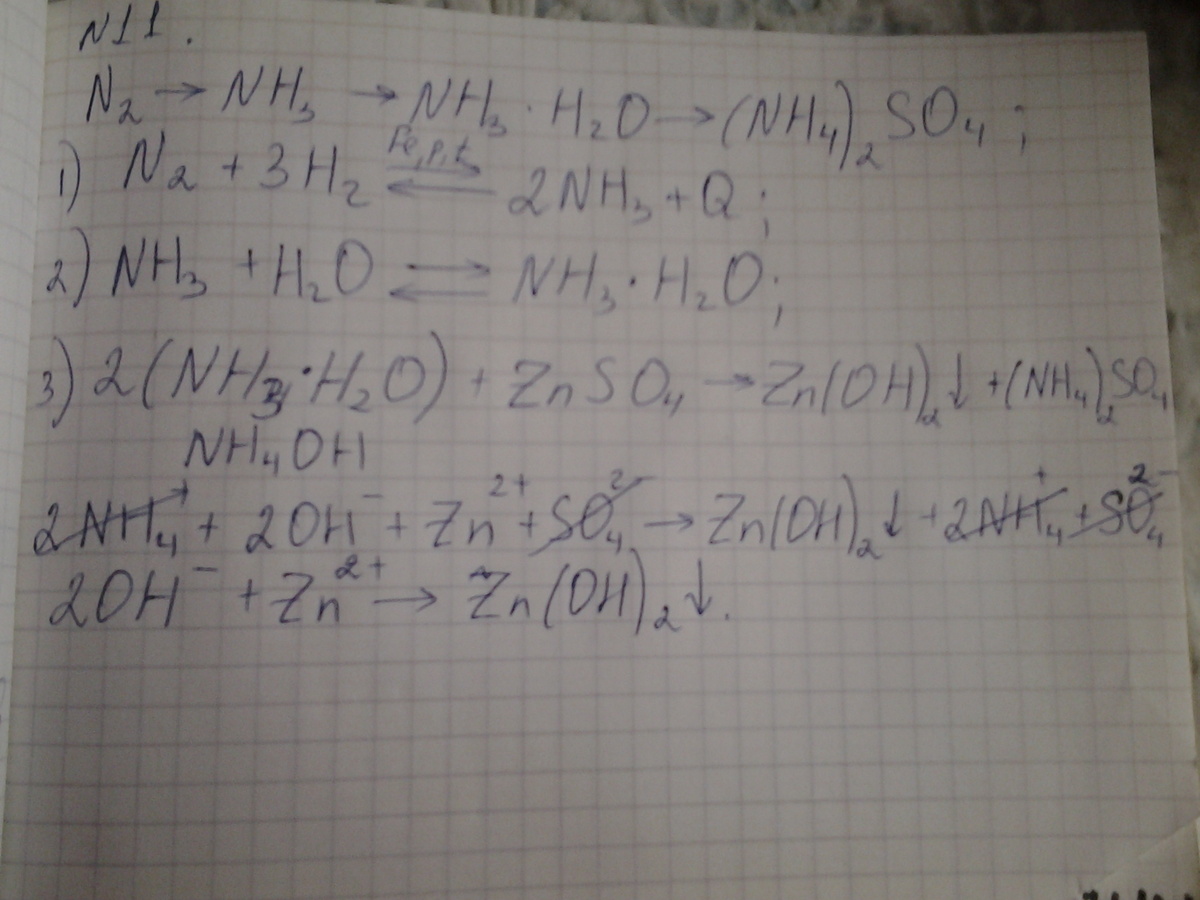 N11.
N₂ → NH₃ → NH₃ · H₂O → (NH₄)₂SO₄ ;
1) N₂ + 3H₂ ⇌ 2NH₃ + Q ; Fe, p, t
2) NH₃ + H₂O ⇌ NH₃ · H₂O ;
3) 2(NH₃ · H₂O) + ZnSO₄ → Zn(OH)₂↓ + (NH₄)₂SO₄
NH₄OH
2NH₄⁺ + 2OH⁻ + Zn²⁺ + SO₄²⁻ → Zn(OH)₂↓ + 2NH₄⁺ + SO₄²⁻
2OH⁻ + Zn²⁺ → Zn(OH)₂↓.